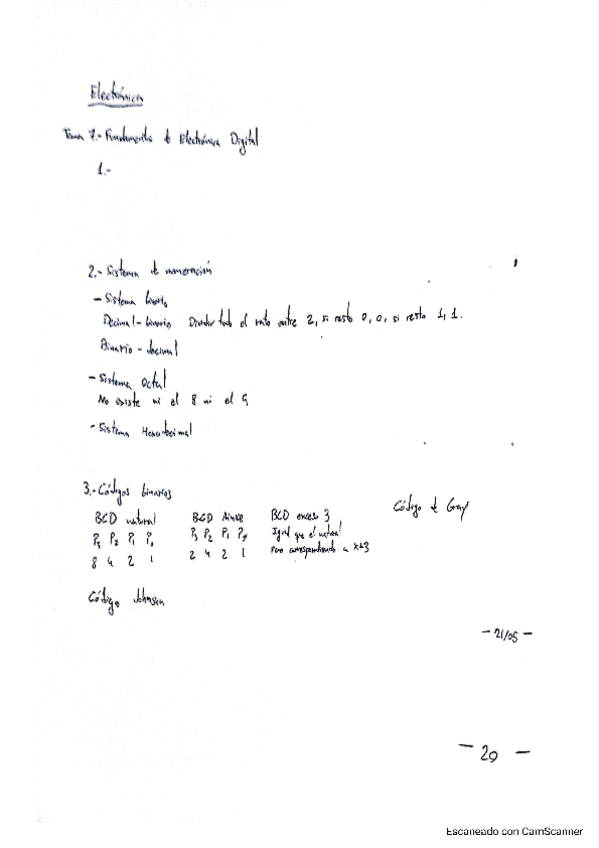 Electrónica
Tema 7.- Fundamentos de Electrónica Digital
1.-
2.- Sistema de numeración
- Sistema binario
Decimal - binario Dividir todo el rato entre 2, si resto 0, 0, si resto 1, 1.
Binario - decimal
- Sistema Octal
No existe ni el 8 ni el 9
- Sistema Hexadecimal
3.- Códigos binarios
BCD natural BCD Aiken BCD exceso 3 Código de Gray
P₃ P₂ P₁ P₀ P₃ P₂ P₁ P₀ Igual que el natural
8 4 2 1 2 4 2 1 pero correspondiendo a x+3
Código Johnson
- 21/05 -
- 29 -
Escaneado con CamScanner